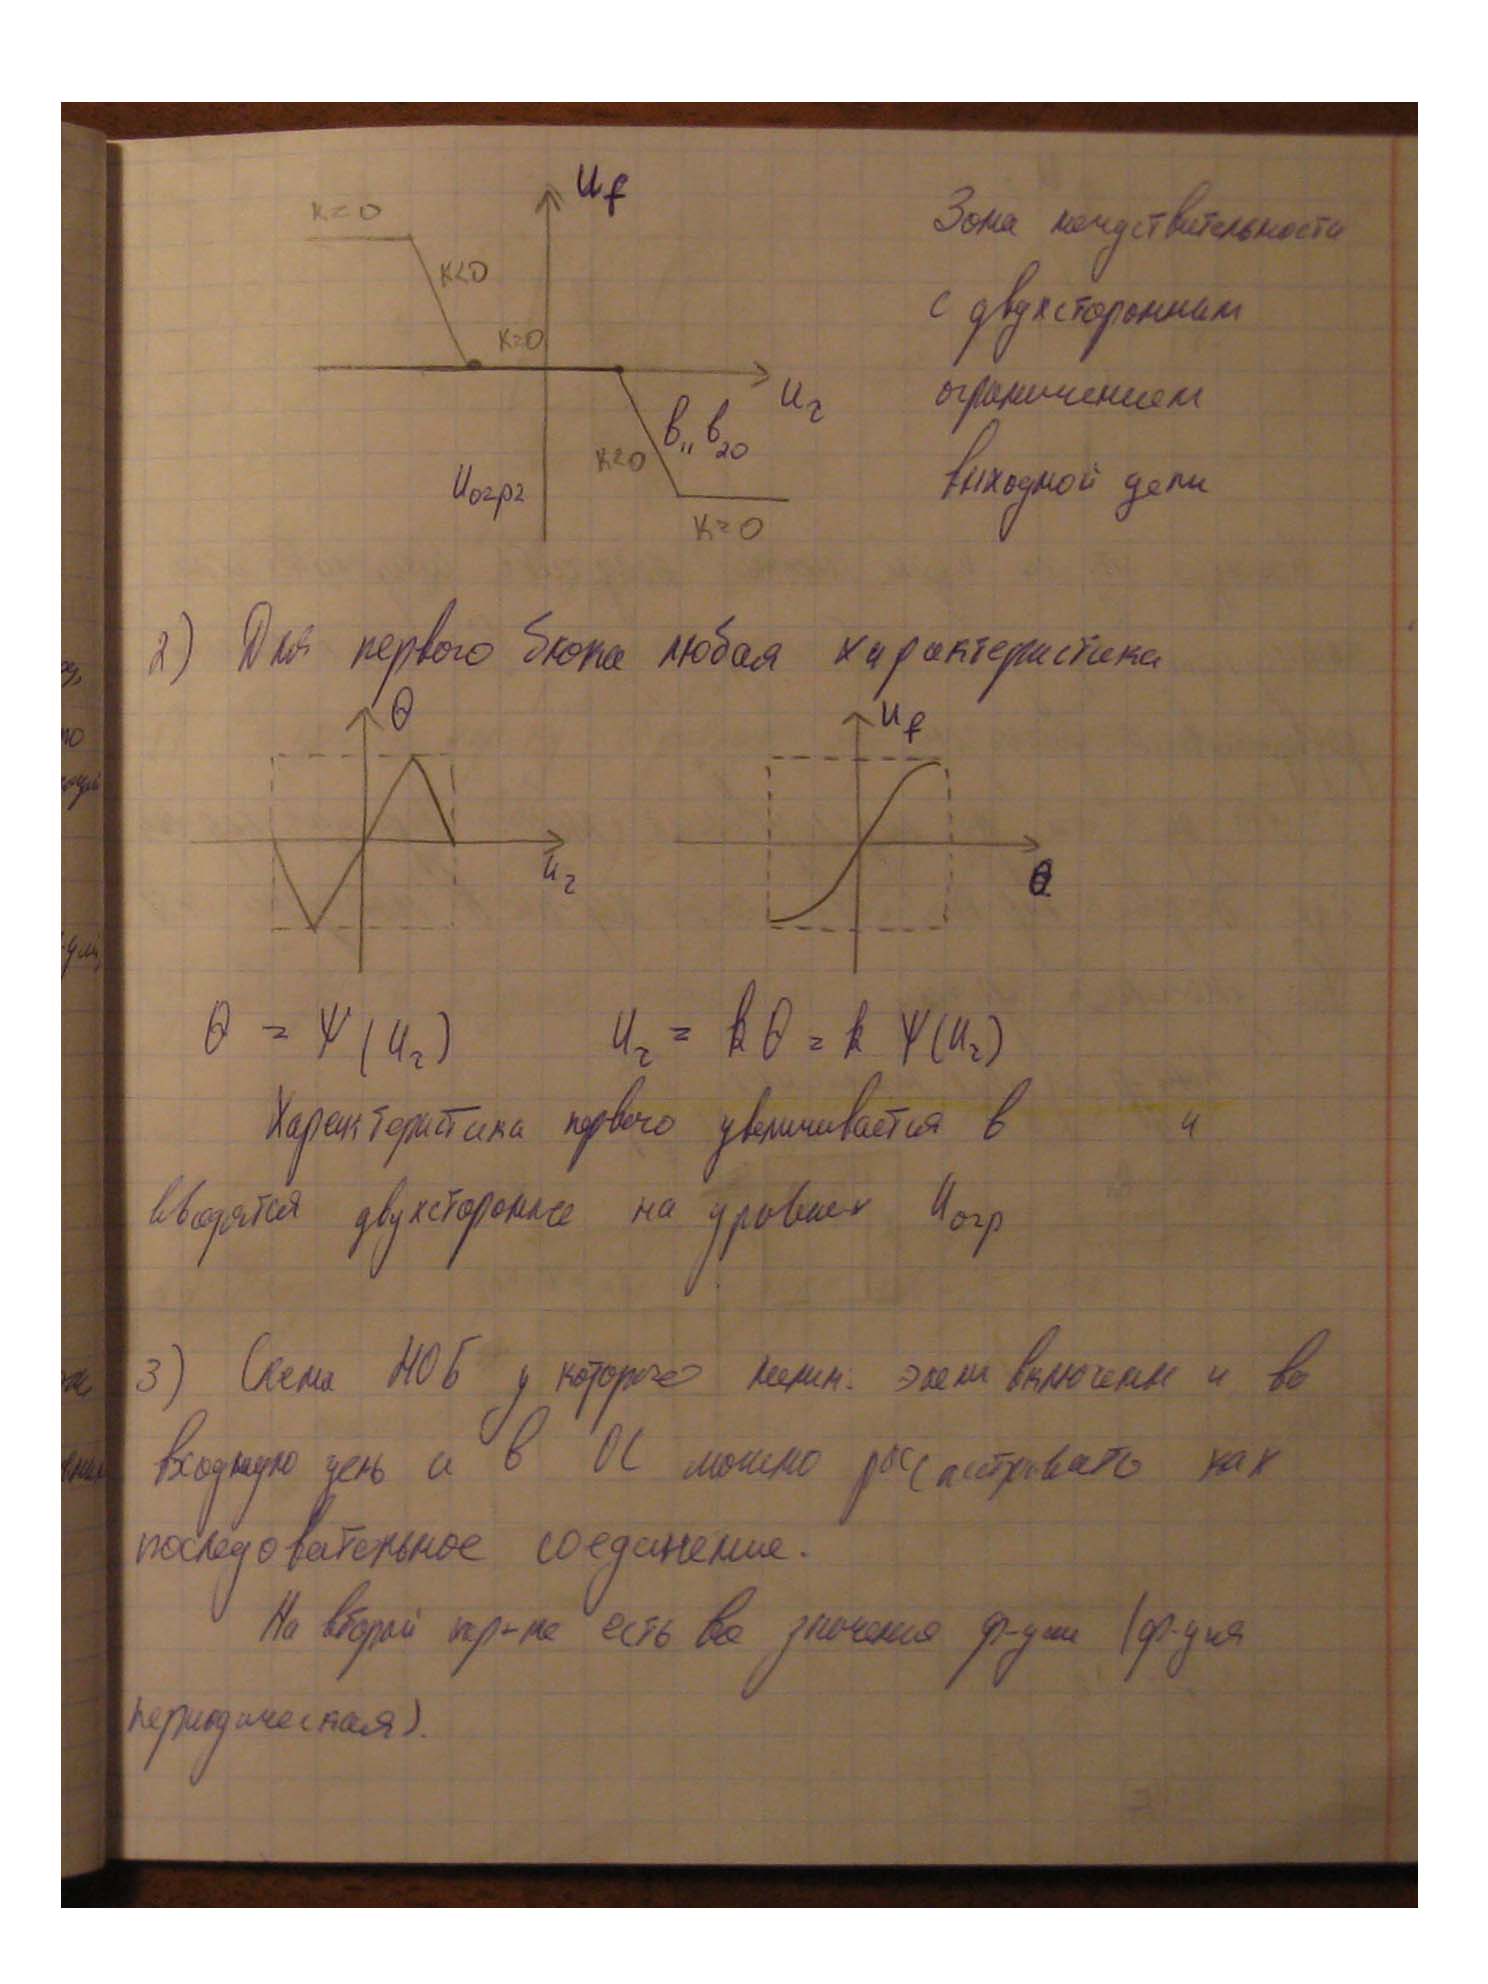 U_f
K=0
K<0
K=0
U_г
В_11 В_20
K<0
U_огрг
K=0
Зона нечуствительности
с двухсторонним
ограничением
выходной цепи
2) Для первого блока любая характеристика
θ
U_г
U_f
θ
θ = Ψ(U_г)
U_г = kθ = k Ψ(U_г)
Характеристика первого увеличивается в и
вводятся двухсторонние на уровнях U_огр
3) Схема НОБ у которого нелин. элем включены и во
входную цепь и в ОС можно рассматривать как
последовательное соединение.
На второй хар-ке есть все значения ф-ции (ф-ция
периодическая).